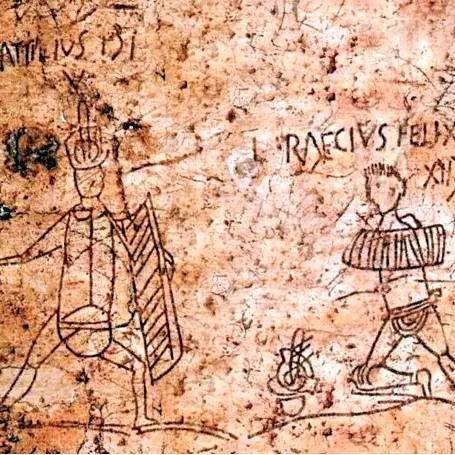 ATTILIVS
L RAECIVS FELIX
XII